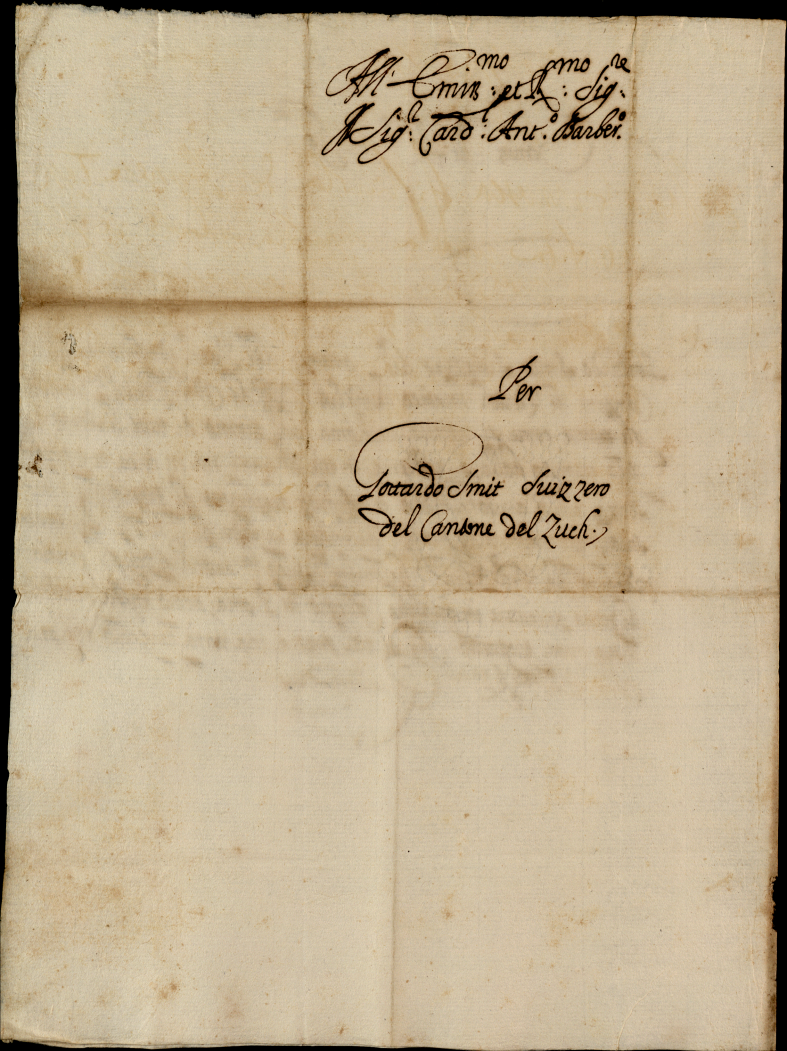 All' Emin:mo et R:mo Sig:re
Il Sig:r Card:l Ant:o Barber:o
Per
Gottardo Smit Suizzero
del Cantone del Zuch.